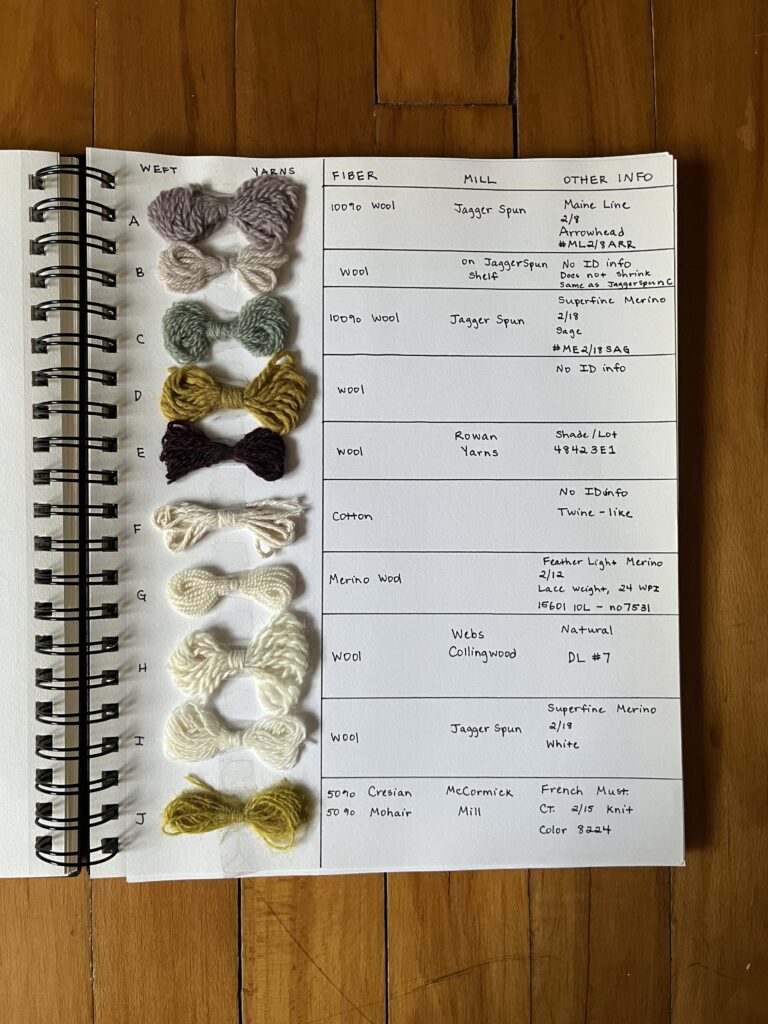 WEFT YARNS FIBER MILL OTHER INFO
A 100% Wool Jagger Spun Maine Line
2/8
Arrowhead
#ML2/8ARR
B Wool on JaggerSpun Shelf No ID info
Does not shrink
Same as JaggerSpun C
C 100% Wool Jagger Spun Superfine Merino
2/18
Sage
#ME2/18SAG
D Wool No ID info
E Wool Rowan Yarns Shade/Lot
48423E1
F Cotton No ID info
Twine-like
G Merino Wool Feather Light Merino
2/12
Lace weight, 24 WPI
15601 10L - no7531
H Wool Webs Collingwood Natural
DL #7
I Wool Jagger Spun Superfine Merino
2/18
White
J 50% Cresian McCormick French Must.
50% Mohair Mill CT. 2/15 Knit
Color 8224